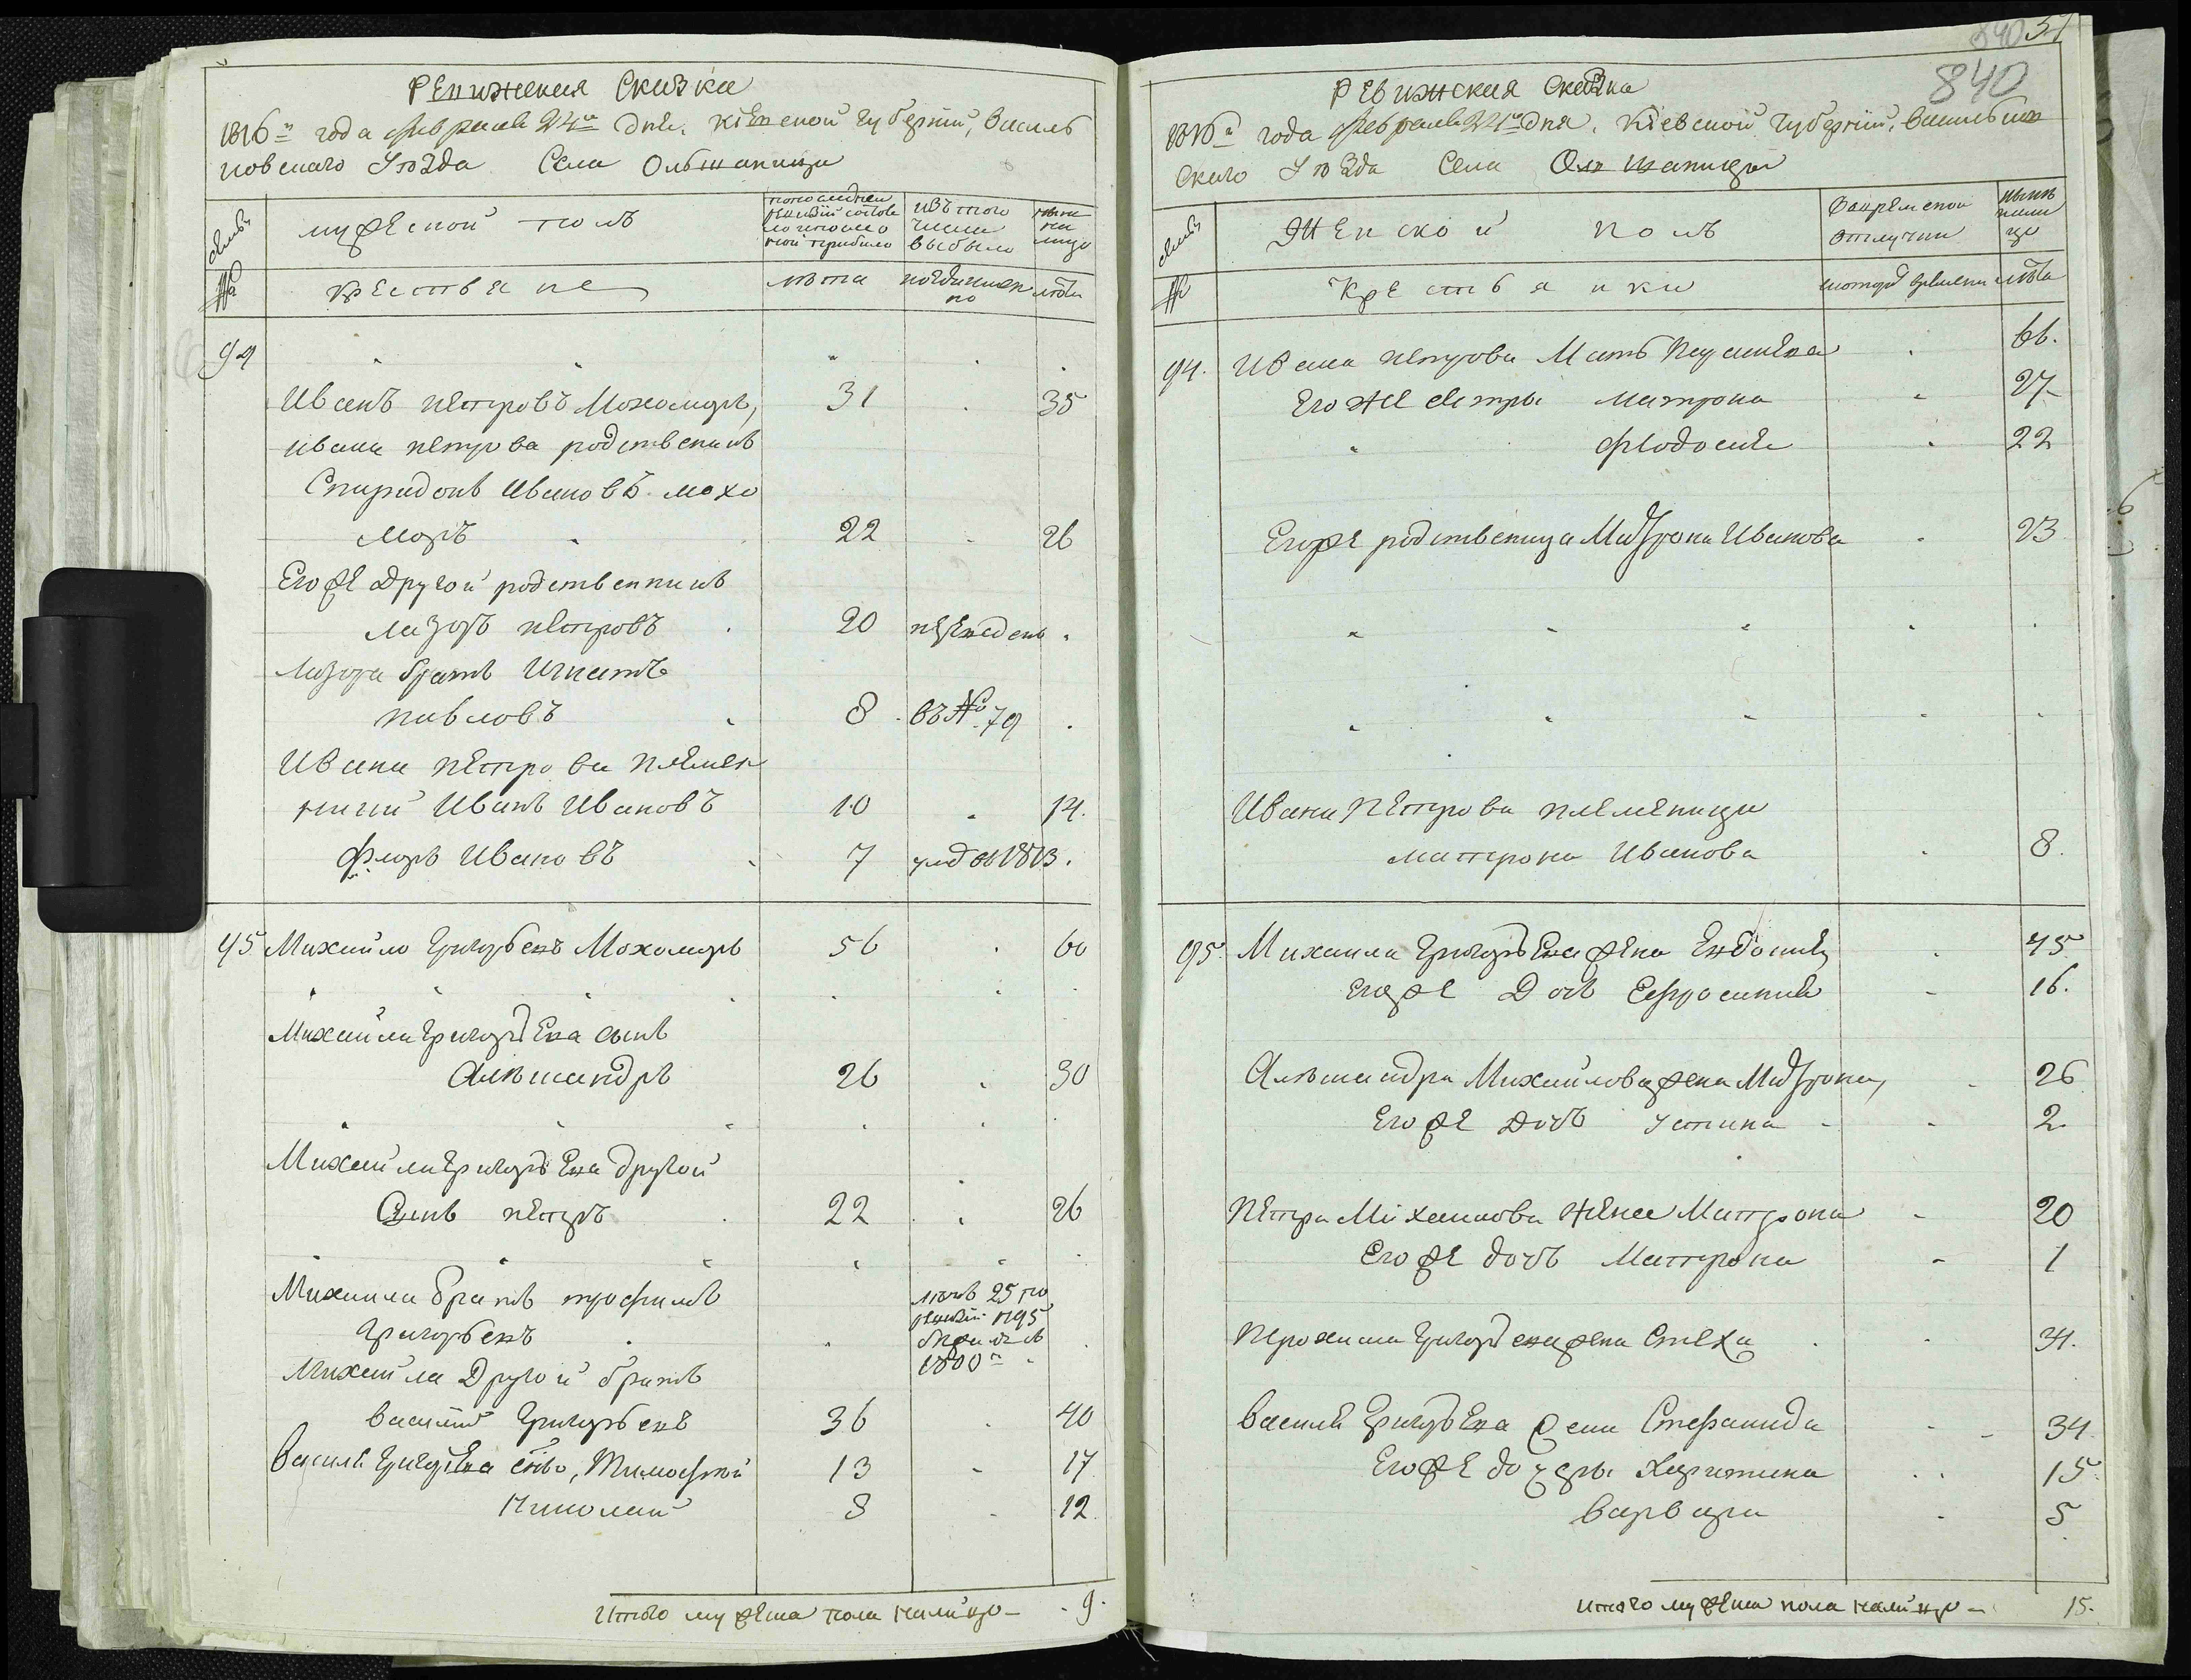 Ревижская Сказка
1816го года февраля 24го дня. Кіевской Губерніи, Василь
ковскаго Уѣзда Села Ольшаницы
семьи
мужеской полъ
по последней ревизіи состояло и после оной прибыло
изъ того числа выбыло
ныне на лицо
№
крестьяне
лѣта
когда именно
лѣта
94
Иванъ петровъ Мохоморъ,
31
35
ивана петрова родственикъ
Спиридонъ Ивановъ мохо
моръ
22
26
Его же другой родственникъ
лазоръ петровъ
20
Лазора братъ Игнатъ
павловъ
8
въ № 79
Ивана петрова племен
никй Иванъ Ивановъ
10
14.
флоръ Ивановъ
7
въ 1813.
95 Михайло Григорьевъ Мохоморъ
56
60
Михайла Григорьева сынъ
Александръ
26
30
Михайла Григорьева другой
Сынъ петръ
22
26
Михаила братъ трофимъ
Григорьевъ
летъ 25 по
ревизіи 1795
1800го
Михайла Другой братъ
василій Григорьевъ
36
40
Василя Григорьева Тимофтей
13
17
Николай
8
12
Итого мужеска пола налицо
9.
37
840
840
Ревижская сказка
1816го года февраля 24го дня. Кіевской Губерніи, Васильков
скаго Уѣзда Села Ольшаницы
семьи
Женской полъ
Во временной отлучки
ныне налицо
№
Крестьянки
с котораго времени
лѣта
94. Ивана петрова Мать
66.
Его же сестры матрона
27
феодосия
22
Его же родственица Матрона Иванова
23
Ивана Петрова племеница
матрона Иванова
8.
95. Михаила Григорьева жена Евдокия
45
Его же Дочь Ефросиния
16.
Александра Михайлова жена Матрона,
26
Его же дочь устина
2
Петра Михайлова жена Матрона
20
Его же дочь Матрона
1
трохима Григорьева жена Стеха
василя Григорьева жена Стефанида
34
Его же дочеры Харитина
15
варвара
5
Итого мужеска пола налицо
15.